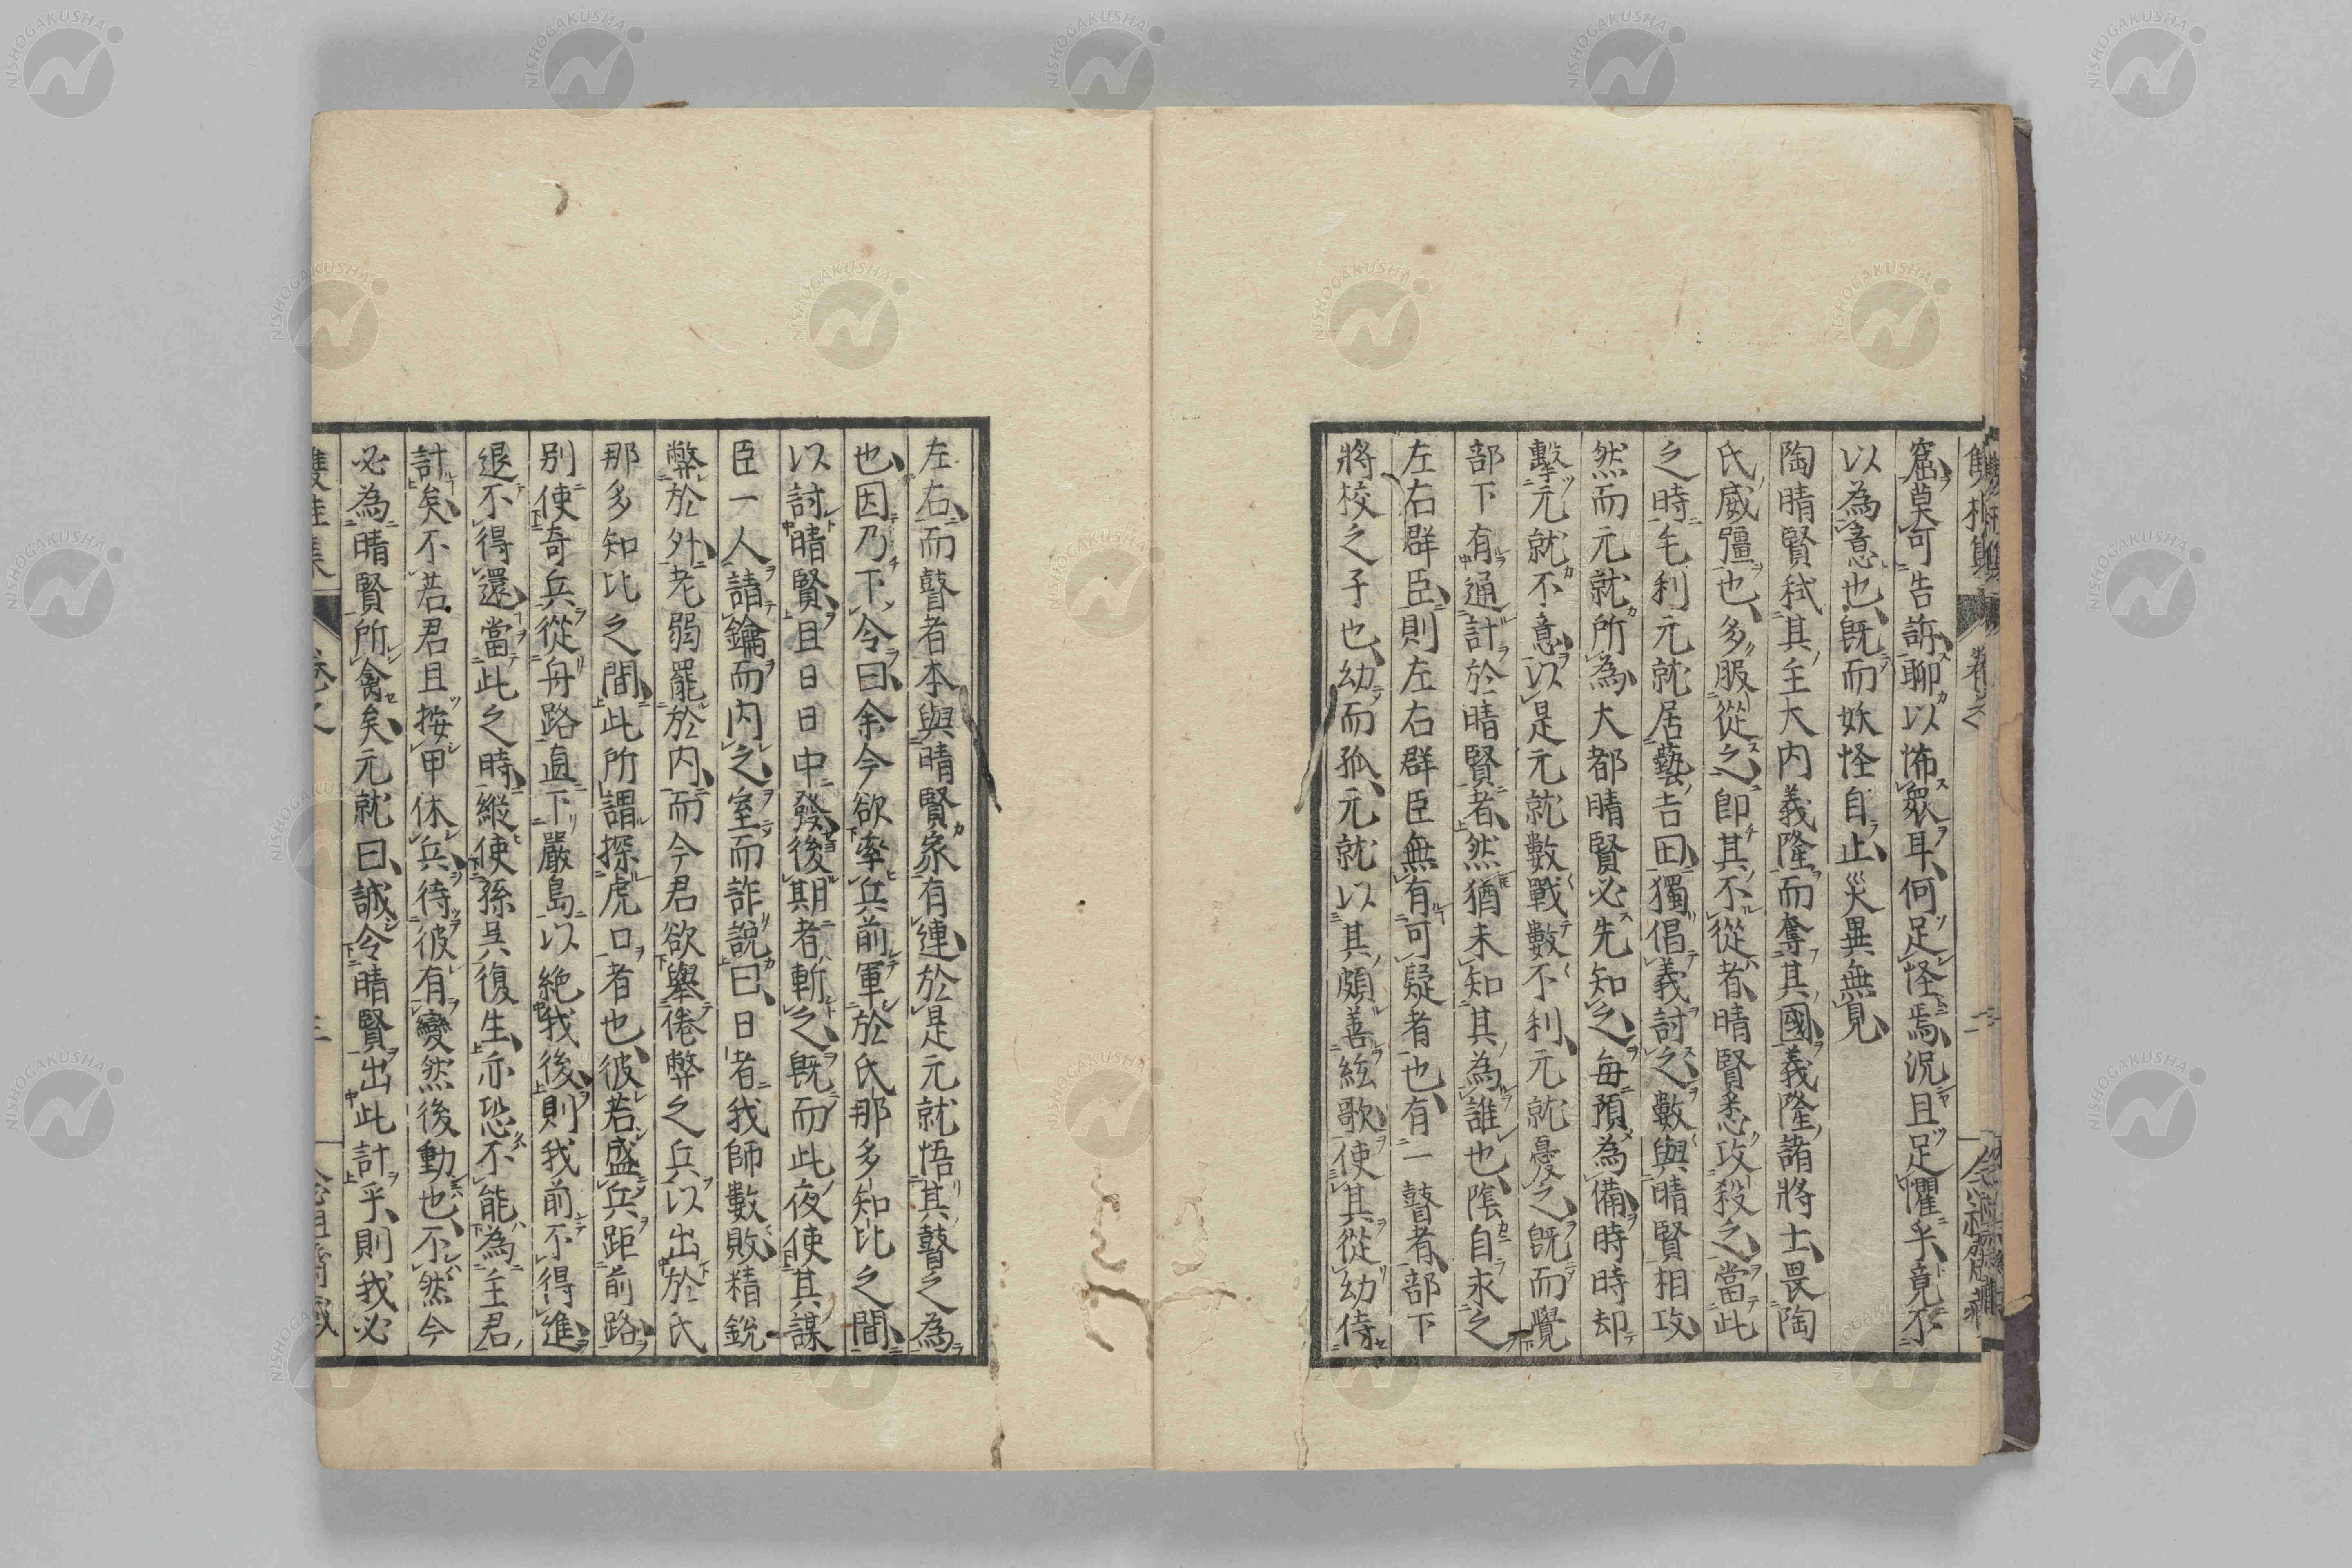 窟莫可告訴聊以怖衆耳何足怪焉況且足懼乎竟不
以為意也既而妖怪自止災異無見
陶晴賢弑其主大内義隆而奪其國義隆諸將士畏陶
氏威彊也多服從之即其不從者晴賢悉攻殺之當此
之時毛利元就居藝吉田獨倡義討之數與晴賢相攻
然而元就所為大都晴賢必先知之每預為備時時却
擊元就不意以是元就數戰數不利元就憂之既而覺
部下有通計於晴賢者然猶未知其為誰也陰自求之
左右群臣則左右群臣無有可疑者也有一瞽者部下
將校之子也幼而孤元就以其頗善絃歌使其從幼侍
左右而瞽者本與晴賢家有連於是元就悟其瞽之為
也因乃下令曰余今欲率兵前軍於氏那多知比之間
以討晴賢且日日中發後期者斬之既而此夜使其謀
臣一人請鑰而内之室而詐説曰日者我師數敗精鋭
弊於外老弱罷於内而今君欲舉倦弊之兵以出於氏
那多知比之間此所謂探虎口者也彼若盛兵距前路
別使奇兵從舟路直下嚴島以絶我後則我前不得進
退不得還當此之時縱使孫呉復生亦恐不能為主君
計矣不若君且按甲休兵待彼有變然後動也不然今
必為晴賢所禽矣元就曰誠令晴賢出此計乎則我必